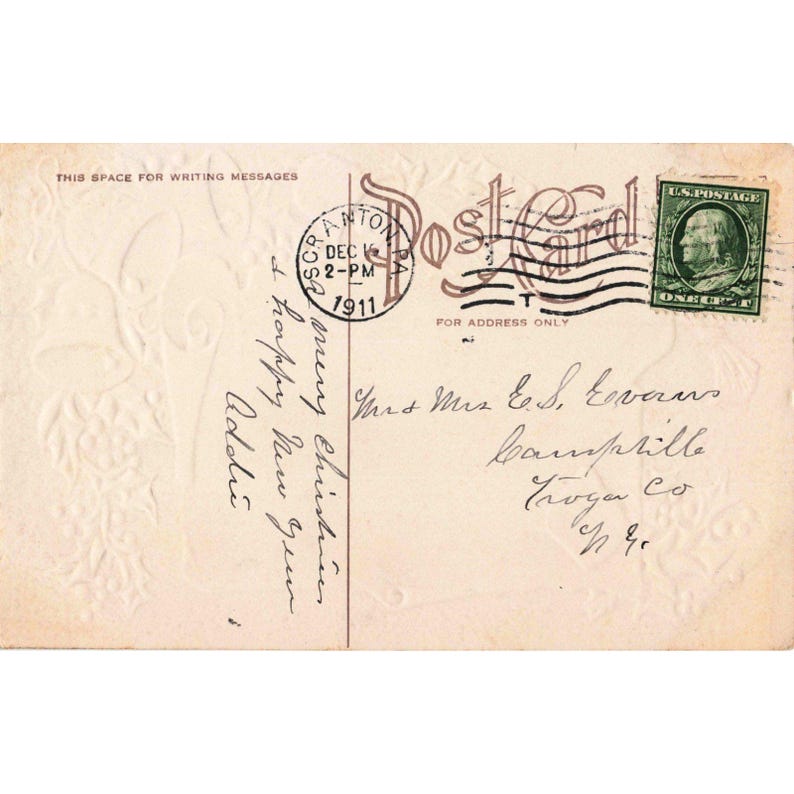 THIS SPACE FOR WRITING MESSAGES
Post Card
FOR ADDRESS ONLY
U.S. POSTAGE
ONE CENT
SCRANTON, PA
DEC
2-PM
1911
T
a merry Christmas
& happy New Year
Addie
Mr & Mrs E. S. Evans
Campville
Tioga Co
N Y.